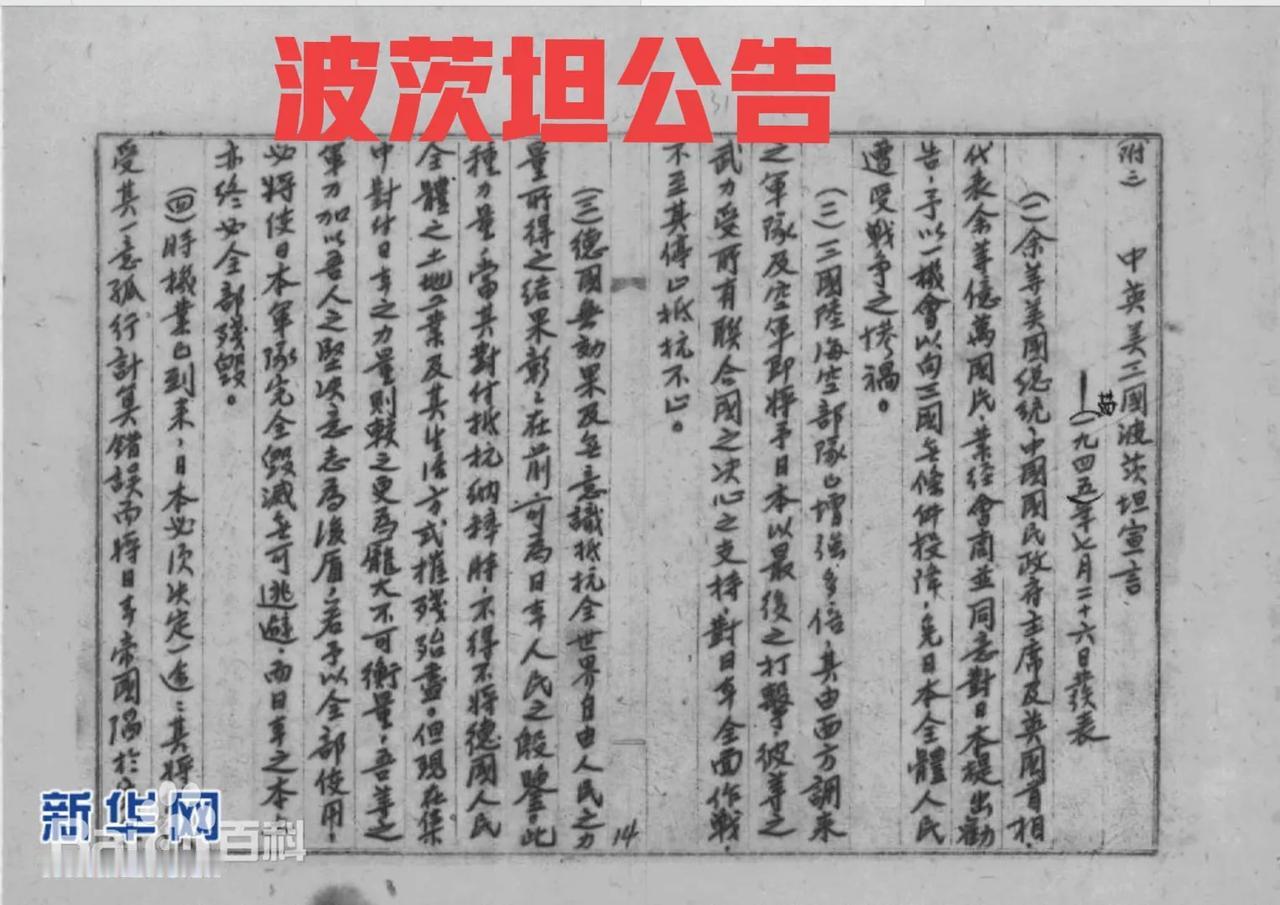 波茨坦公告
附二 中英美三國波茨坦宣言
(一九四五)年七月二十六日公佈發表
(一)余等美國總統、中國國民政府主席及英國首相、
代表余等億萬國民、業經會商並同意對日本提出勸
告、予以一機會以向三國無條件投降、免日本全體人民
遭受戰爭之慘禍。
(二)三國陸海空部隊已增強多倍、其由西方調來
之軍隊及空軍即將予日本以最後之打擊、彼等之
武力受所有聯合國之決心之支持、對日本全面作戰、
不至其停止抵抗不止。
14
(三)德國無効果及無意識抵抗全世界自由人民之力
量所得之結果彰彰在前、可為日本人民之殷鑒。此
種力量、當其對付抵抗納粹時、不得不將德國人民
全體之土地工業及其生活方式摧殘殆盡。但現在集
中對付日本之力量則較之更為龐大不可衡量、吾等之
軍力加以吾人之堅決意志為後盾、若予以全部使用、
必將使日本軍隊完全毀滅無可逃避、而日本之本
亦終必全部殘毀。
(四)時機業已到來、日本必須決定一途：其將
受其一意孤行計算錯誤而將日本帝國陷於
新华网
Baidu百科